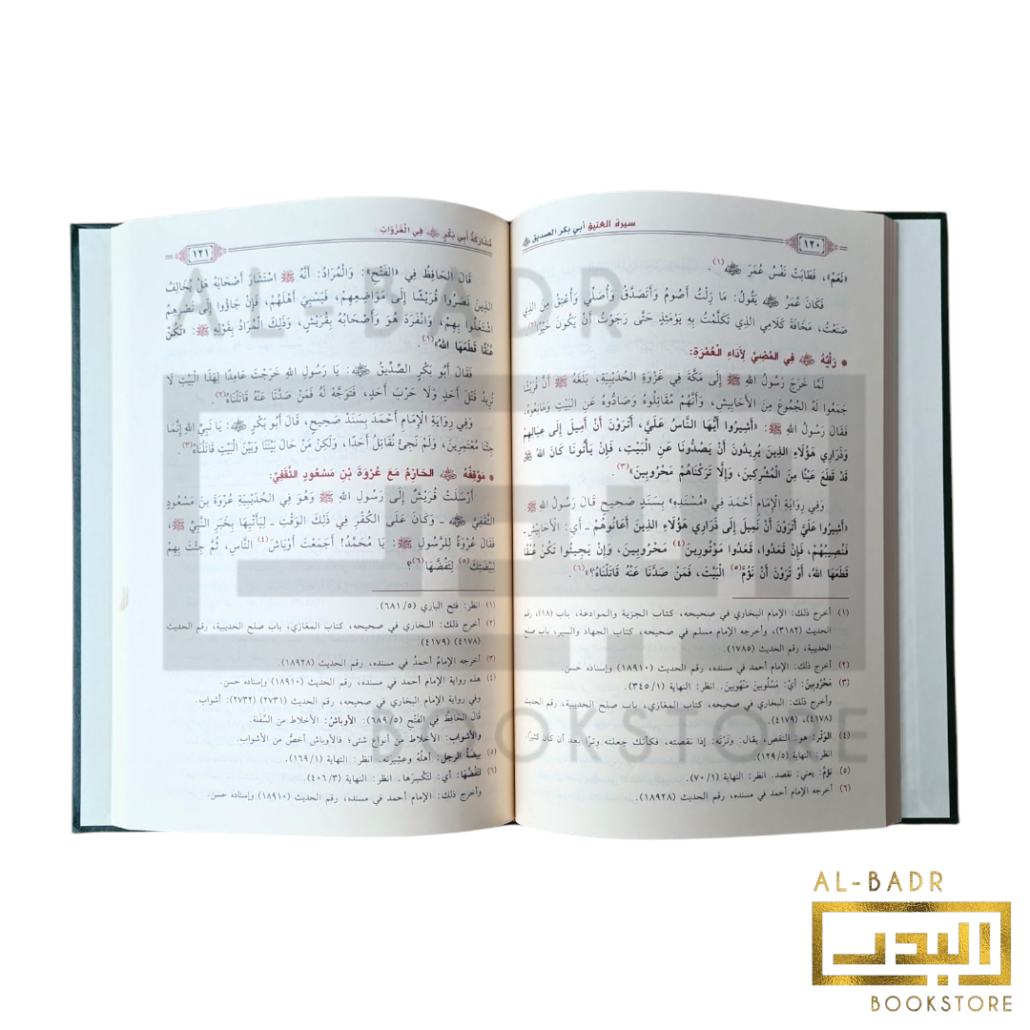 سيرة العتيق أبي بكر الصديق
١٢٠
«نَعَمْ»، فَطَابَتْ نَفْسُ عُمَرَ ﷺ (١).
فَكَانَ عُمَرُ يَقُولُ: مَا زِلْتُ أَصُومُ وَأَتَصَدَّقُ وَأُصَلِّي وَأُعْتِقُ مِنَ الذِي
صَنَعْتُ، مَخَافَةَ كَلَامِي الذِي تَكَلَّمْتُ بِهِ يَوْمَئِذٍ حَتَّى رَجَوْتُ أَنْ يَكُونَ خَيْرًا(٢).
* رَأْيُهُ فِي المُضِيِّ لِأَدَاءِ العُمْرَةِ:
لَمَّا خَرَجَ رَسُولُ اللهِ ﷺ إِلَى مَكَّةَ فِي غَزْوَةِ الحُدَيْبِيَةِ، بَلَغَهُ ﷺ أَنَّ قُرَيْشًا
جَمَعُوا لَهُ الجُمُوعَ مِنَ الأَحَابِيشِ، وَأَنَّهُمْ مُقَاتِلُوهُ وَصَادُّوهُ عَنِ البَيْتِ وَمَانِعُوهُ،
فَقَالَ رَسُولُ اللهِ ﷺ: «أَشِيرُوا أَيُّهَا النَّاسُ عَلَيَّ، أَتَرَوْنَ أَنْ أَمِيلَ إِلَى عِيَالِهِمْ
وَذَرَارِي هَؤُلَاءِ الذِينَ يُرِيدُونَ أَنْ يَصُدُّونَا عَنِ البَيْتِ، فَإِنْ يَأْتُونَا كَانَ اللهُ
قَدْ قَطَعَ عَيْنًا مِنَ المُشْرِكِينَ، وَإِلَّا تَرَكْنَاهُمْ مَحْرُوبِينَ»(٣).
وَفِي رِوَايَةِ الإِمَامِ أَحْمَدَ فِي «مُسْنَدِهِ» بِسَنَدٍ صَحِيحٍ قَالَ رَسُولُ اللهِ ﷺ
«أَشِيرُوا عَلَيَّ أَتَرَوْنَ أَنْ نَمِيلَ إِلَى ذَرَارِي هَؤُلَاءِ الذِينَ أَعَانُوهُمْ ـ أَيْ: الأَحَابِيشَ ـ
فَنُصِيبُهُمْ، فَإِنْ قَعَدُوا، قَعَدُوا مَوْتُورِينَ(٤) مَحْرُوبِينَ، وَإِنْ يَجِيئُوا تَكُنْ عُنُقًا
قَطَعَهَا اللهُ، أَوْ تَرَوْنَ أَنْ نَؤُمَّ(٥) البَيْتَ، فَمَنْ صَدَّنَا عَنْهُ قَاتَلْنَاهُ؟»(٦).
(١) أخرج ذلك: الإمام البخاري في صحيحه، كتاب الجزية والموادعة، باب (١٨)، رقم
الحديث (٣١٨٢)، وأخرجه الإمام مسلم في صحيحه، كتاب الجهاد والسير، باب صلح
الحديبية، رقم الحديث (١٧٨٥).
(٢) أخرج ذلك: الإمام أحمد في مسنده، رقم الحديث (١٨٩١٠) وإسناده حسن.
(٣) مَحْرُوبِينَ: أي: مَسْلُوبِينَ مَنْهُوبِينَ. انظر: النهاية (٣٤٥/١).
وأخرج ذلك: البخاري في صحيحه، كتاب المغازي، باب صلح الحديبية، رقم الحديث
(٤١٧٨)، (٤١٧٩).
(٤) الوَتْرُ: هو: النقص، يقال: وَتَرْتَهُ: إذا نقصته، فكأنك جعلته وِتْرًا بعد أن كان كثيرًا.
انظر: النهاية (١٢٩/٥).
(٥) نَؤُمُّ: يعني: نقصد. انظر: النهاية (٧٠/١).
(٦) أخرجه الإمام أحمد في مسنده، رقم الحديث (١٨٩٢٨).
مُشَارَكَةُ أَبِي بَكْرٍ فِي الْغَزَوَاتِ
١٢١
قَالَ الحَافِظُ فِي «الفَتْحِ»: وَالْمُرَادُ: أَنَّهُ ﷺ اسْتَشَارَ أَصْحَابَهُ هَلْ يُخَالِفُ
الذِينَ نَصَرُوا قُرَيْشًا إِلَى مَوَاضِعِهِمْ، فَيَسْبِيَ أَهْلَهُمْ، فَإِنْ جَاؤُوا إِلَى نَصْرِهِمْ
اشْتَغَلُوا بِهِمْ، وَانْفَرَدَ هُوَ وَأَصْحَابُهُ بِقُرَيْشٍ، وَذَلِكَ المُرَادُ بِقَوْلِهِ ﷺ: «تَكُنْ
عُنُقًا قَطَعَهَا اللهُ»(١).
فَقَالَ أَبُو بَكْرٍ الصِّدِّيقُ: يَا رَسُولَ اللهِ خَرَجْتَ عَامِدًا لِهَذَا الْبَيْتِ لَا
تُرِيدُ قَتْلَ أَحَدٍ وَلَا حَرْبَ أَحَدٍ، فَتَوَجَّهْ لَهُ فَمَنْ صَدَّنَا عَنْهُ قَاتَلْنَاهُ(٢).
وَفِي رِوَايَةِ الإِمَامِ أَحْمَدَ بِسَنَدٍ صَحِيحٍ، قَالَ أَبُو بَكْرٍ: يَا نَبِيَّ اللهِ إِنَّمَا
جِئْنَا مُعْتَمِرِينَ، وَلَمْ نَجِئْ نُقَاتِلُ أَحَدًا، وَلَكِنْ مَنْ حَالَ بَيْنَنَا وَبَيْنَ الْبَيْتِ قَاتَلْنَاهُ(٣).
* مَوْقِفُهُ الحَازِمُ مَعَ عُرْوَةَ بْنِ مَسْعُودٍ الثَّقَفِيِّ:
أَرْسَلَتْ قُرَيْشٌ إِلَى رَسُولِ اللهِ ﷺ وَهُوَ فِي الحُدَيْبِيَةِ عُرْوَةَ بنَ مَسْعُودٍ
الثَّقَفِيَّ ـ وَكَانَ عَلَى الكُفْرِ فِي ذَلِكَ الوَقْتِ ـ لِيَأْتِيَهَا بِخَبَرِ النَّبِيِّ ﷺ،
فَقَالَ عُرْوَةُ لِلرَّسُولِ ﷺ: يَا مُحَمَّدُ! أَجَمَعْتَ أَوْبَاشَ(٤) النَّاسِ، ثُمَّ جِئْتَ بِهِمْ
لِبَيْضَتِكَ(٥) لِتَفُضَّهَا(٦)؟
(١) انظر: فتح الباري (٦٨١/٥).
(٢) أخرج ذلك: البخاري في صحيحه، كتاب المغازي، باب صلح الحديبية، رقم الحديث
(٤١٧٨) (٤١٧٩).
(٣) أخرجه الإمامُ أحمدُ في مسنده، رقم الحديث (١٨٩٢٨).
(٤) هذه رواية الإمام أحمد في مسنده، رقم الحديث (١٨٩١٠) وإسناده حسن.
وفي رواية الإمام البخاري في صحيحه، رقم الحديث (٢٧٣١) (٢٧٣٢): أشواب.
قَالَ الحَافِظُ في الفَتْحِ (٦٨٩/٥): الأوباشُ: الأخلاط من السَّفَلَة.
والأشواب: الأخلاط من أنواعٍ شتى؛ فالأوباش أخصُّ من الأشواب.
(٥) بيضةُ الرجلِ: أهلُهُ وعشيرتُه. انظر: النهاية (١٦٩/١).
(٦) لِتَفُضَّهَا: أي: لتكْسِرَها. انظر: النهاية (٤٠٦/٣).
وأخرج ذلك: الإمام أحمد في مسنده، رقم الحديث (١٨٩١٠) وإسناده حسن.
AL-BADR
BOOKSTORE
AL-BADR
البدر
BOOKSTORE